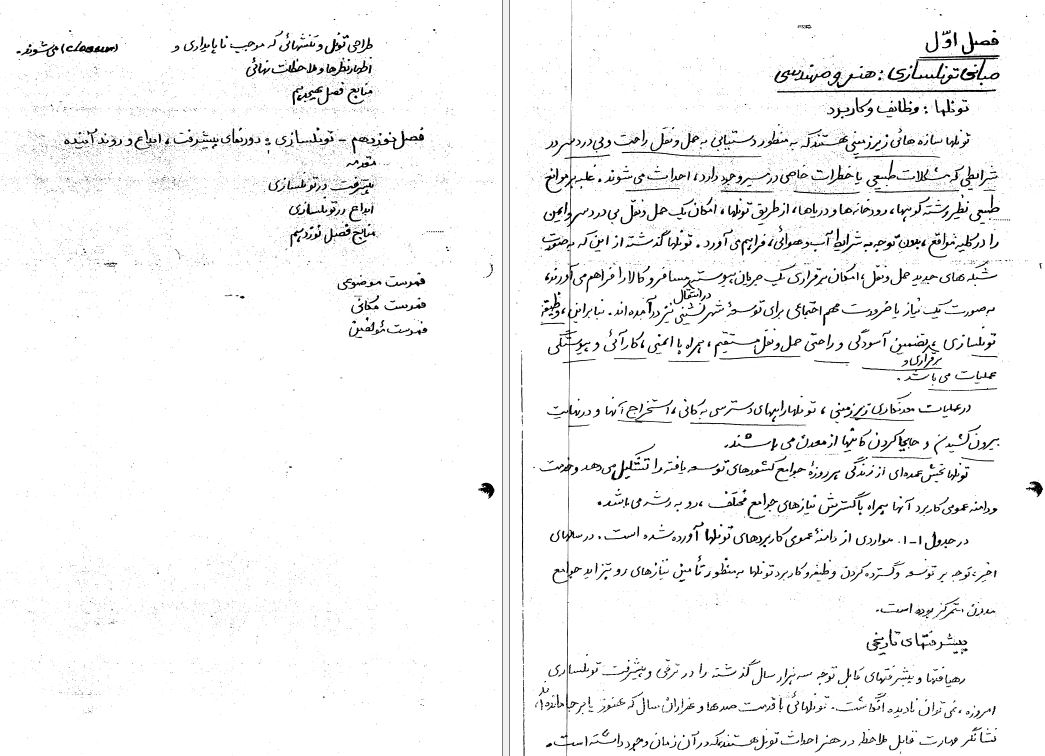 فصل اوّل
مبانی تونلسازی: هنر و مهندسی
تونلها: وظایف و کاربرد
تونلها سازه هائی زیرزمینی هستند که به منظور دستیابی به حمل و نقل راحت و بی دردسر در
شرایطی که مشکلات طبیعی یا خطرات خاصی در مسیر وجود دارد، احداث می شوند. غلبه بر موانع
طبیعی نظیر رشته کوهها، رودخانه ها و دریاها، از طریق تونلها، امکان یک حمل و نقل بی دردسر و ایمن
را در کلیه مواقع، بدون توجه به شرایط آب و هوائی، فراهم می آورد. تونلها گذشته از این که به صورت
شبکه های جدید حمل و نقل، امکان برقراری یک جریان پیوسته در انتقال مسافر و کالا را فراهم می آورند،
به صورت یک نیاز یا ضرورت مهم اجتماعی برای توسعهٔ شهرنشینی نیز در آمده اند. بنابراین، وظیفهٔ
تونلسازی، تضمین آسودگی و راحتی حمل و نقل مستقیم، همراه با ایمنی، کارآئی و برقراری و پیوستگی
عملیات می باشد.
در عملیات معدنکاری زیرزمینی، تونلها راههای دسترسی به کانی، استخراج آنها و در نهایت
بیرون کشیدن و جابجا کردن کانیها از معدن می باشند.
تونلها بخش عمده ای از زندگی هر روزهٔ جوامع کشورهای توسعه یافته را تشکیل می دهد و خدمت
و دامنه عمومی کاربرد آنها همراه با گسترش نیازهای جوامع مختلف، رو به رشد می باشد.
در جدول ۱-۱. مواردی از دامنهٔ عمومی کاربردهای تونلها آورده شده است. در سالهای
اخیر، توجه بر توسعه و گسترده کردن وظیفه و کاربرد تونلها به منظور تأمین نیازهای رو به تزاید جوامع
مدرن، متمرکز بوده است.
پیشرفتهای تاریخی
رهیافتها و پیشرفتهای قابل توجه سه هزار سال گذشته را در ترقی و پیشرفت تونلسازی
امروزه، نمی توان نادیده انگاشت. تونلهائی با قدمت صدها و هزاران سال که هنوز پا بر جا مانده اند،
نشانگر مهارت قابل ملاحظه در هنر احداث تونل هستند که در آن زمان وجود داشته است.
طراحی تونل و تنشهائی که موجب ناپایداری و می شوند.
اظهار نظرها و ملاحظات نهائی
منابع فصل هیجدهم
فصل نوزدهم - تونلسازی: دورنمای پیشرفت، ابداع و روند آینده
مقدمه
پیشرفت در تونلسازی
ابداع در تونلسازی
منابع فصل نوزدهم
فهرست موضوعی
فهرست مکانی
فهرست مؤلفین